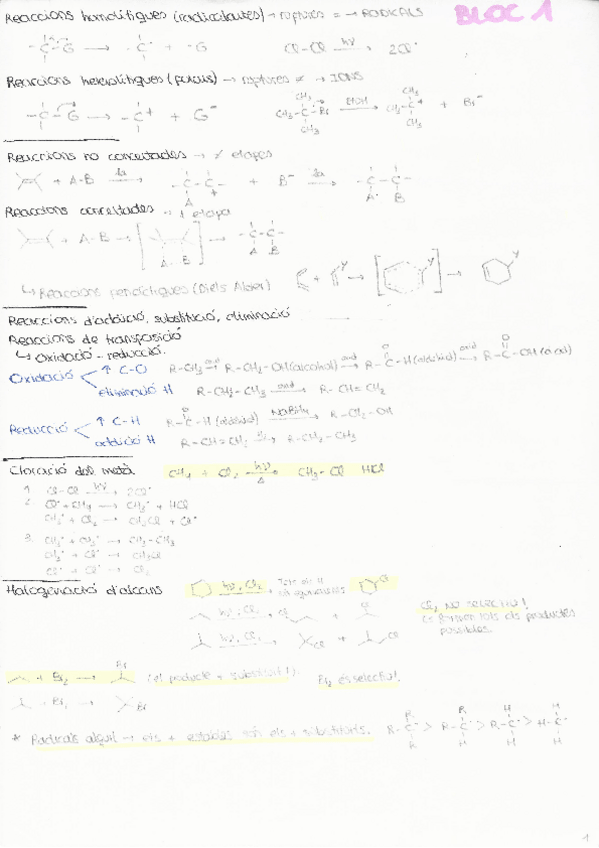 Reaccions homolítiques (radicalàries) → ruptures = → RADICALS
BLOC 1
-C-G → -C· + ·G
Cl-Cl hν → 2Cl·
Reaccions heterolítiques (polars) → ruptures ≠ → IONS
-C-G → -C+ + G-
CH3-C-Br EtOH → CH3-C+ + Br-
CH3 CH3
CH3 CH3
Reaccions no concertades → 2 etapes
+ A-B → -C-C- + B- → -C-C-
A + A B
Reaccions concertades → 1 etapa
+ A-B → [ A-B ] → -C-C-
A B
↳ Reaccions pericícliques (Diels Alder)
Reaccions d'addició, substitució, eliminació
Reaccions de transposició
↳ Oxidació - reducció.
Oxidació ↑ C-O R-CH3 oxid → R-CH2-OH (alcohol) oxid → R-C-H (aldehid) oxid → R-C-OH (àcid)
O O
eliminació H R-CH2-CH3 oxid → R-CH=CH2
Reducció ↑ C-H R-C-H (aldehid) NaBH4 → R-CH2-OH
O
addició H R-CH=CH2 → R-CH2-CH3
Cloració del metà CH4 + Cl2 hν Δ → CH3-Cl HCl
1. Cl-Cl hν → 2Cl·
2. Cl· + CH4 → CH3· + HCl
CH3· + Cl2 → CH3Cl + Cl·
3. CH3· + CH3· → CH3-CH3
CH3· + Cl· → CH3Cl
Cl· + Cl· → Cl2
Halogenació d'alcans hν, Cl2 Tots els H són equivalents Cl
hν, Cl2 → Cl + Cl
Cl2 NO selectiu!
Es formen tots els productes
possibles.
hν, Cl2 → Cl + Cl
+ Br2 → Br (el producte + substituït!). Br2 és selectiu!
+ Br2 → Br
* Radicals alquil → els + estables són els + substituïts. R-C· > R-C· > R-C· > H-C·
R R H H
R H H H
1